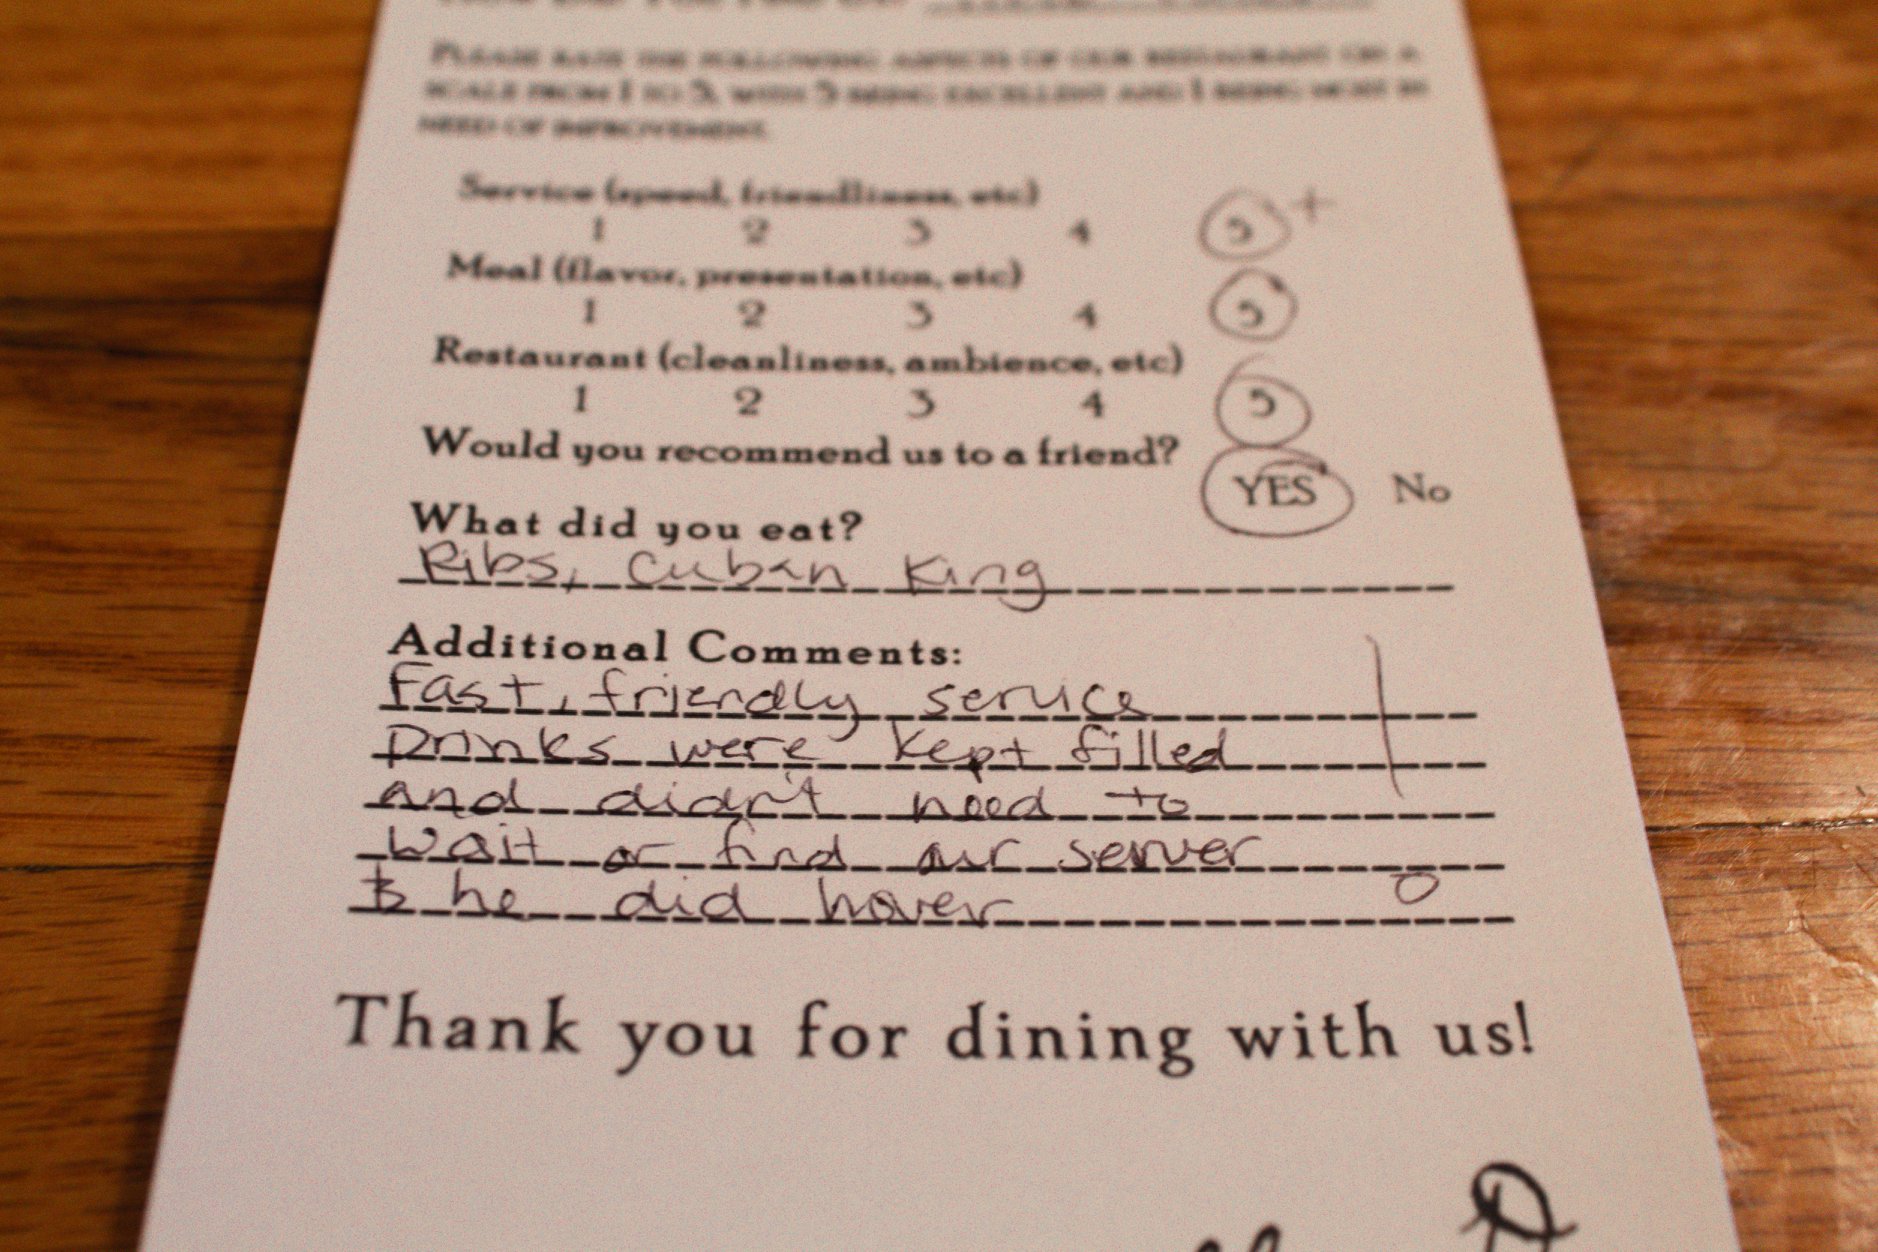 PLEASE RATE THE FOLLOWING ASPECTS OF OUR RESTAURANT ON A
SCALE FROM 1 TO 5, WITH 5 BEING EXCELLENT AND 1 BEING MOST IN
NEED OF IMPROVEMENT.
Service (speed, friendliness, etc)
1 2 3 4 5+
Meal (flavor, presentation, etc)
1 2 3 4 5
Restaurant (cleanliness, ambience, etc)
1 2 3 4 5
Would you recommend us to a friend?
YES No
What did you eat?
Ribs, Cuban King
Additional Comments:
Fast, friendly service
Drinks were kept filled
and didn't need to
wait or find our server
& he did hover
Thank you for dining with us!